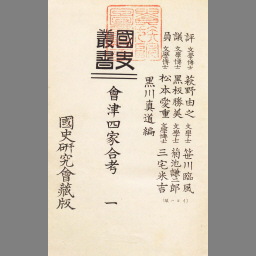 評議員
文學博士 萩野由之
文學博士 黑板勝美
文學博士 松本愛重
文學士 笹川臨風
文學士 菊池謙二郎
文學博士 三宅米吉
黑川真道編
國史叢書
會津四家合考 一
國史研究會藏版